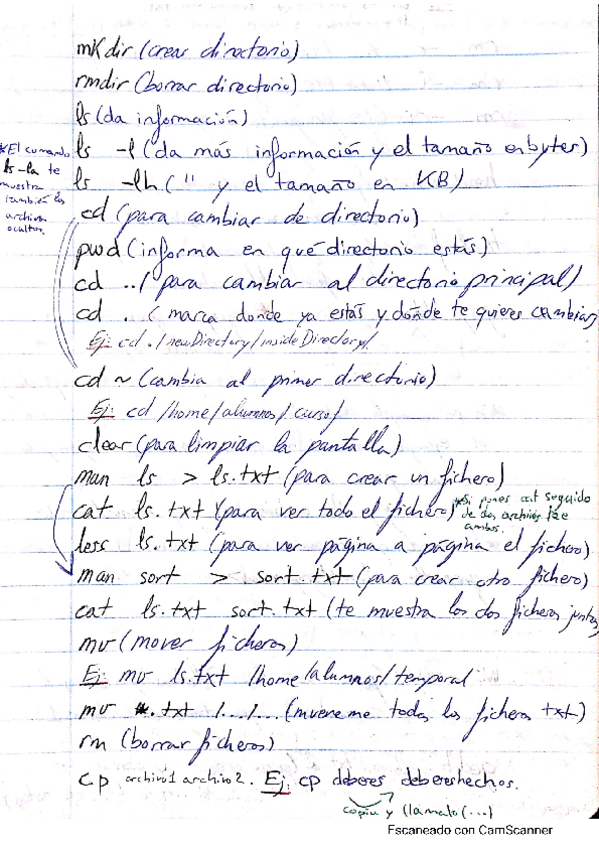 mkdir (crear directorio)
rmdir (borrar directorio)
ls (da información)
ls -l (da más información y el tamaño en bytes)
ls -lh ( " y el tamaño en KB)
*El comando
ls -la te
muestra
también los
archivos
ocultos.
cd (para cambiar de directorio)
pwd (informa en qué directorio estás)
cd ../ (para cambiar al directorio principal)
cd . (marca donde ya estás y dónde te quieres cambiar)
Ej: cd ./newDirectory/insideDirectory/
cd ~ (cambia al primer directorio)
Ej: cd /home/alumnos/curso/
clear (para limpiar la pantalla)
man ls > ls.txt (para crear un fichero)
cat ls.txt (para ver todo el fichero)
*Si pones cat seguido
de dos archivos lee
ambos.
less ls.txt (para ver página a página el fichero)
man sort > sort.txt (para crear otro fichero)
cat ls.txt sort.txt (te muestra los dos ficheros juntos)
mv (mover ficheros)
Ej: mv ls.txt /home/alumnos/temporal
mv *.txt /.../... (mueveme todos los ficheros txt)
rm (borrar ficheros)
cp archivo1 archivo2. Ej: cp deberes debereshechos.
copia y llámalo (...)
Escaneado con CamScanner